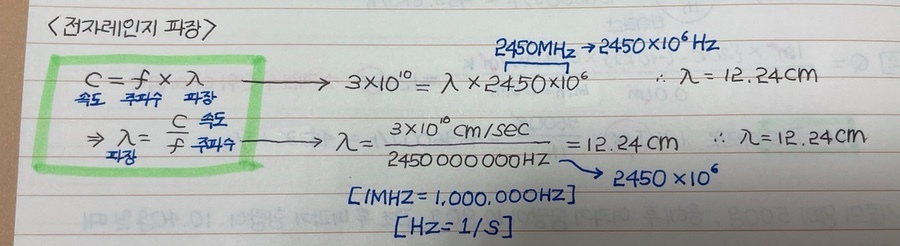 <전자레인지 파장>
2450MHz → 2450×10⁶ Hz
C = f × λ → 3×10¹⁰ = λ × 2450×10⁶ ∴ λ = 12.24cm
속도 주파수 파장
⇒ λ = C/f 속도 주파수 → λ = 3×10¹⁰ cm/sec / 2450000000HZ = 12.24cm ∴ λ = 12.24cm
파장
→ 2450 ×10⁶
[1MHZ = 1,000,000HZ]
[HZ = 1/S]